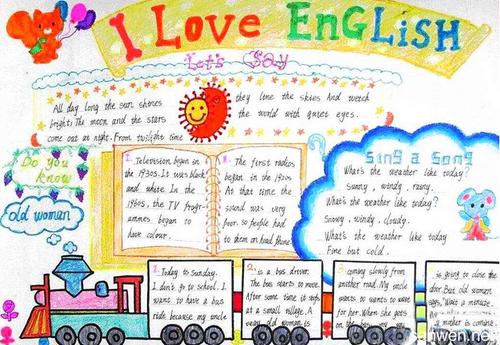 I Love EnGLiSH
Let's Say
All day long the sun shines
bright. The moon and the stars
come out at night. From twilight time
they line the skies And
the world with quiet eyes.
Do you
know
old woman
1. Television began in
the 1930s. It was black
and white. In the
1960s, the TV progr-
ammes began to
have colour.
The first radios
began in the 1920s
At that time the
sound was very
poor. so people had
to them on head phone
Sing a Song
What's the weather like today?
Sunny, windy, rainy.
What's the weather like today?
Snowy, windy, cloudy.
What's the weather like today
Fine but cold.
1. Today to sunday.
I don't go to school. I
want to have a bus
ride because my uncle
2. is a bus driver.
The bus starts to move.
After some time it stops
at a small village. A
very old woman is
3. coming slowly from
another road. My uncle
wants to wants to wait
for her. When she gets
on the
is going to close the
door. But old woman
says, Wait a minute.
My mother is coming